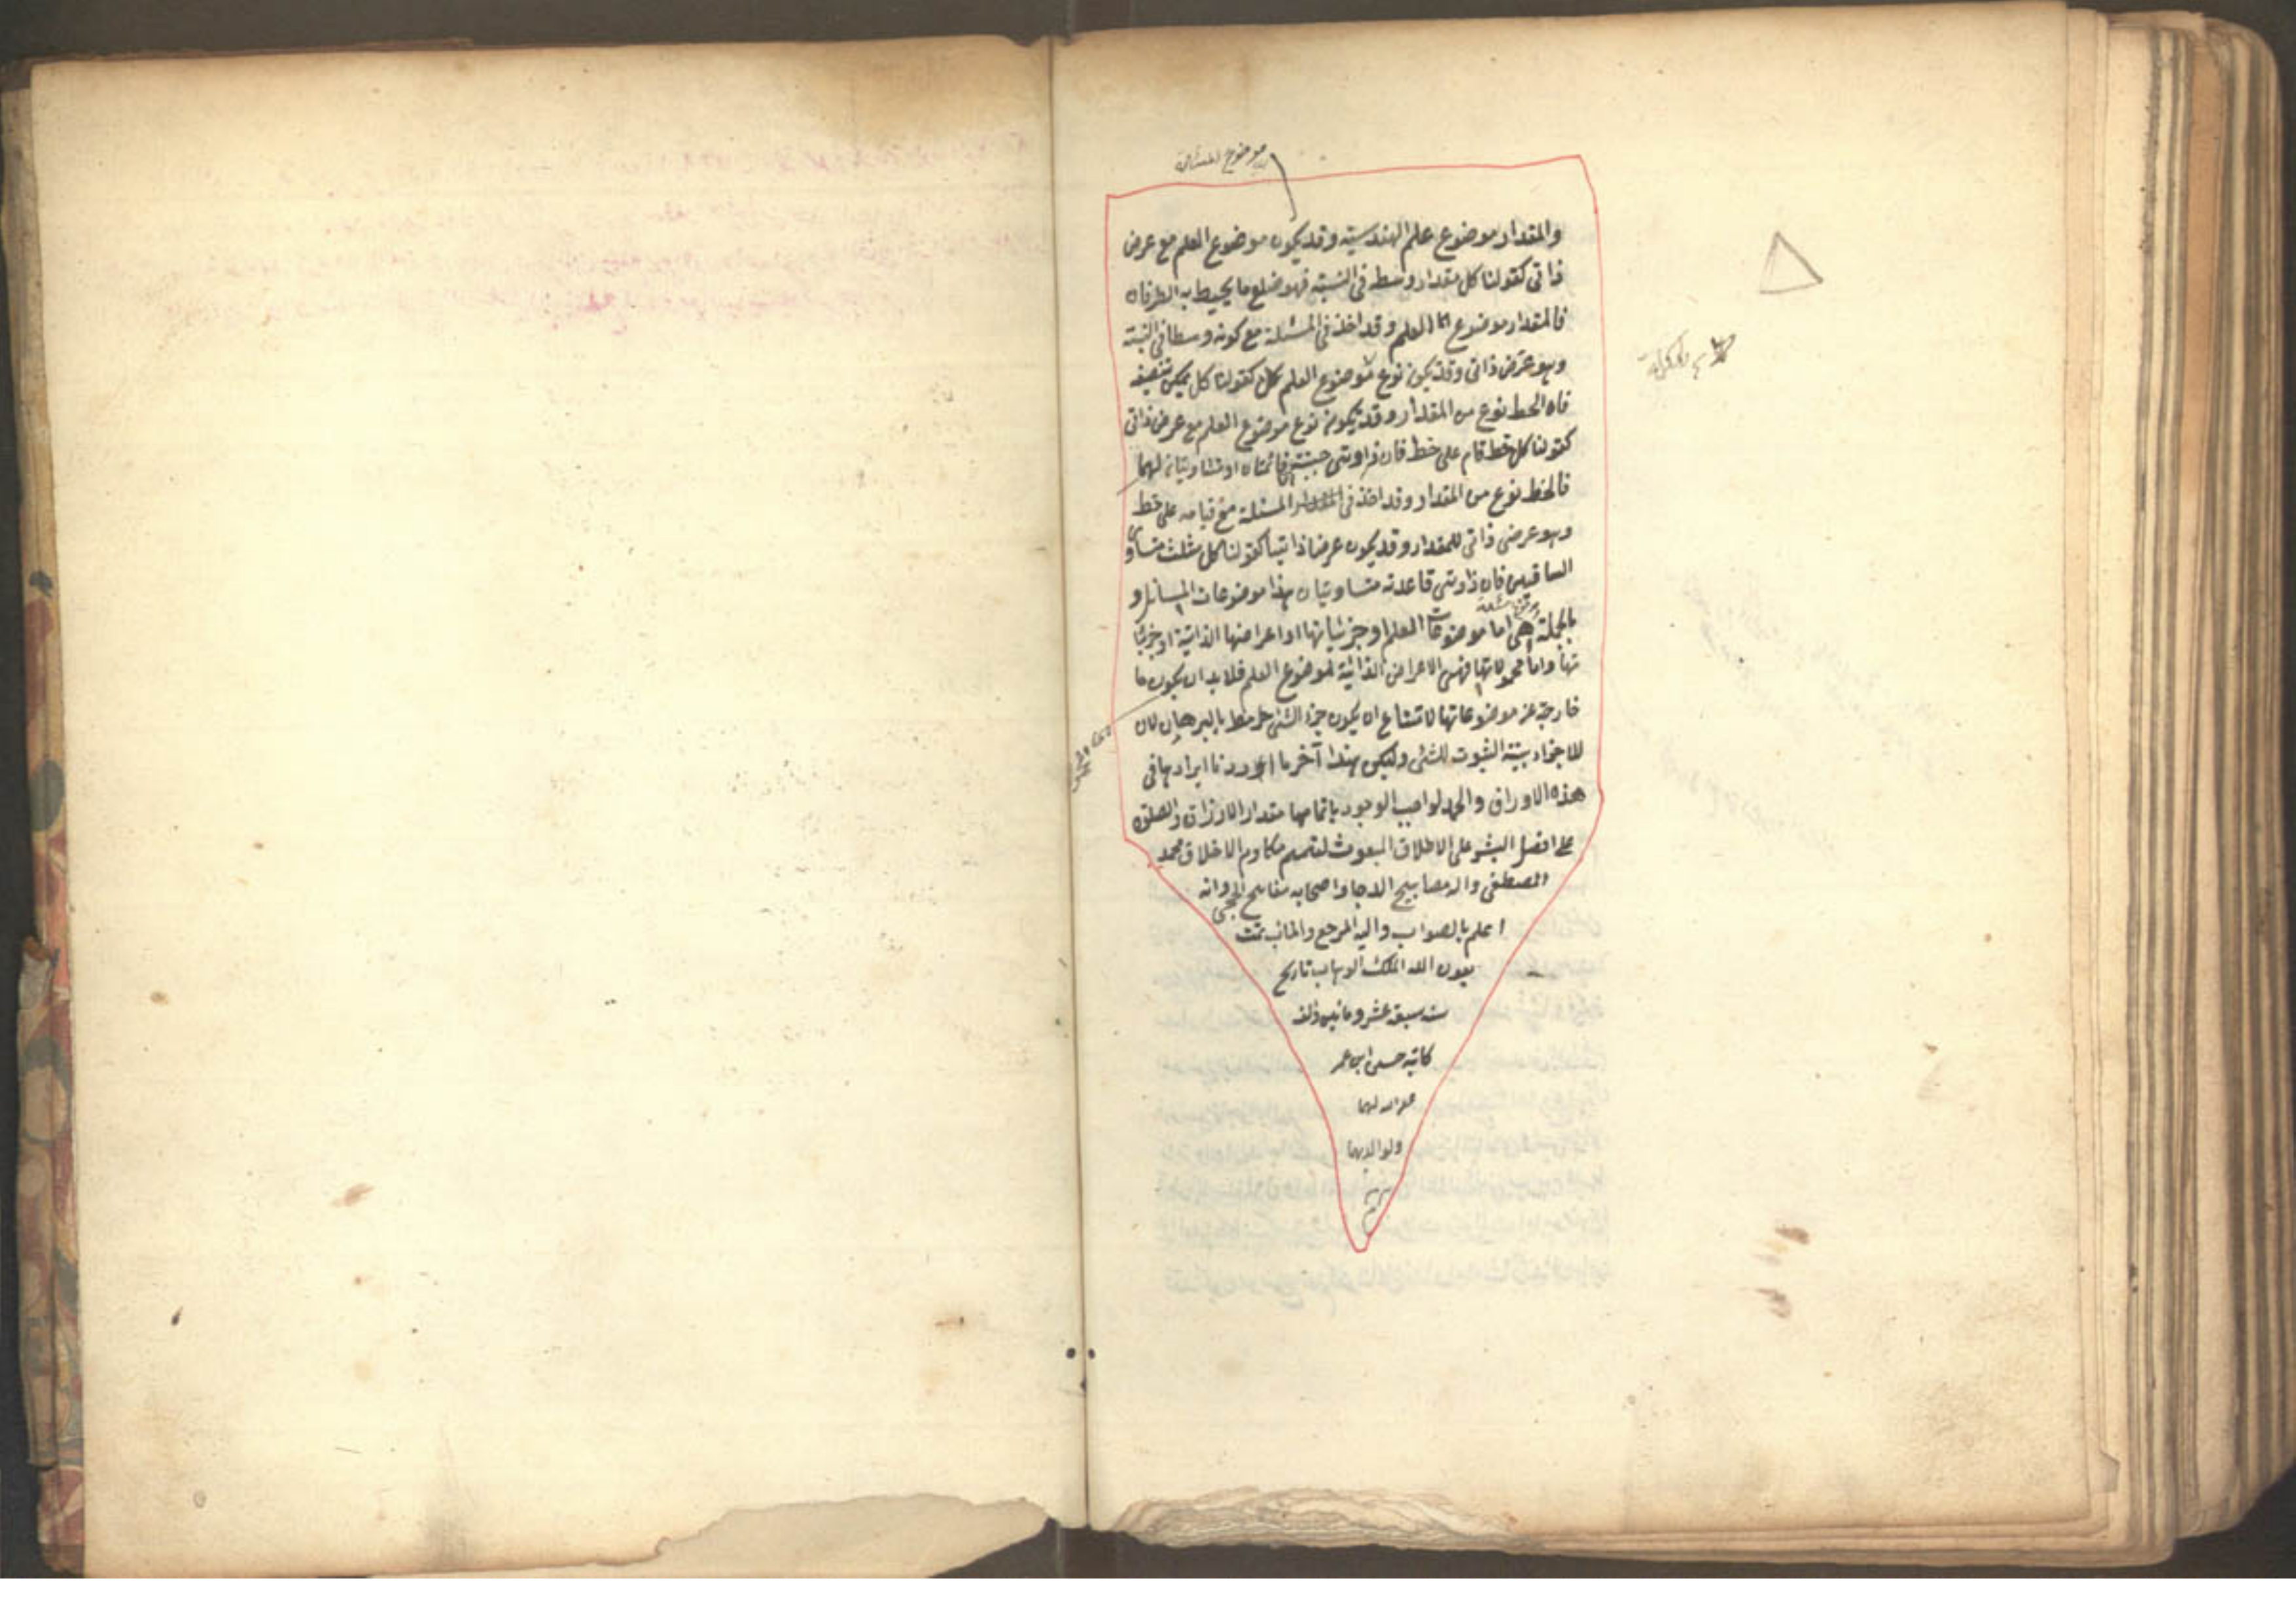 موضوع المسئلة
والمقدار موضوع علم الهندسية وقد يكون موضوع العلم مع عرض
ذاتى كقولنا كل مقدار وسط فى النسبة فهو ضلع ما يحيط به الطرفان
فالمقدار موضوع العلم وقد اخذ فى المسئلة مع كونه وسطا فى النسبة
وهو عرض ذاتى وقد يكون نوع موضوع العلم كقولنا كل يمكن تنصيفه
فان الخط نوع من المقدار وقد يكون نوع موضوع العلم مع عرض ذاتى
كقولنا كل خط قام على خط فان زاويتى جنبتيه قائمتان او متساويتان لهما
فالخط نوع من المقدار وقد اخذ فى المسئلة مع قيامه على خط
وهو عرض ذاتى للمقدار وقد يكون عرضا ذاتيا كقولنا كل مثلث متساوى
الساقين فان زاويتى قاعدته متساويتان هذا موضوعات المسائل و
بالجملة هى اما موضوعات العلم او جزئياتها او اعراضها الذاتية او جزئيا
تها واما محمولاتها فهى الاعراض الذاتية لموضوع العلم فلا بد ان يكون ما
خارجة عن موضوعاتها لامتناع ان يكون جزء الشئ بالبرهان لان
الاجزاء بينة الثبوت للشئ وليكن هذا آخر ما اوردنا ايرادها فى
هذه الاوراق والحمد لواجب الوجود باتمامها مقدار الارزاق والصلوة
على افضل البشر على الاطلاق المبعوث لتتميم مكارم الاخلاق محمد
المصطفى واله مصابيح الدجا واصحابه مفاتيح الحجى والله
اعلم بالصواب واليه المرجع والمآب تمت
بعون الله الملك الوهاب تاريخ
سنه سبعة عشر ومائتين والف
كاتبه حسن ابن عمر
غفر الله لهما
ولوالديهما